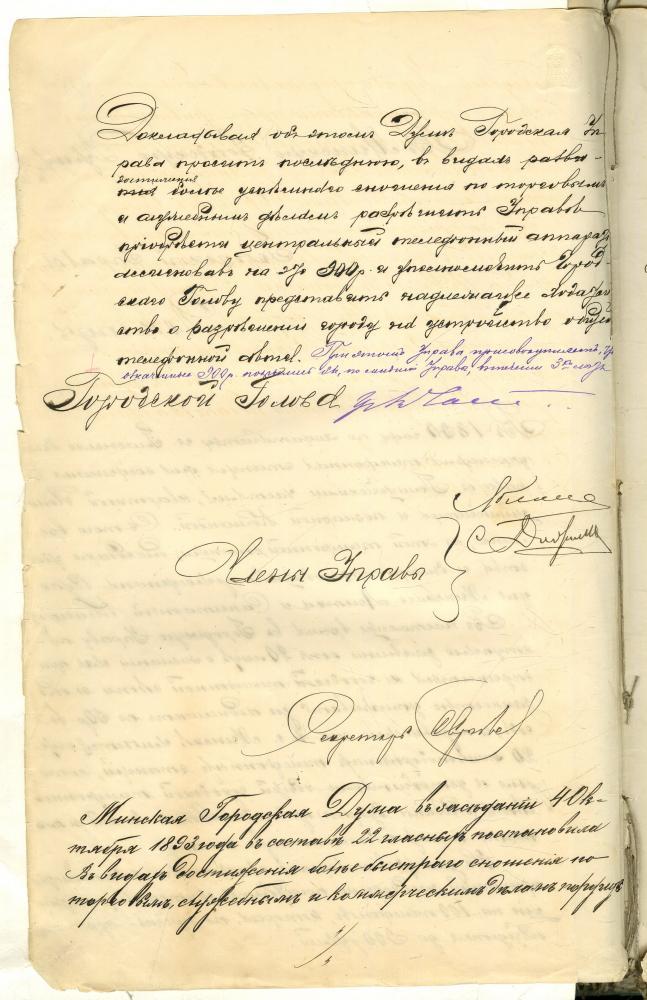 Докладывая объ этомъ Думѣ Городская Уп-
рава проситъ послѣднюю, въ видахъ разви-
достиженія
тія болѣе успѣшнаго сношенія по торговымъ
и служебнымъ дѣламъ разрѣшить Управѣ
пріобрѣсти центральный телефонный аппаратъ
ассигновавъ на это 900 р. и уполномочить Город-
скаго Голову представить надлежащее ходатай
ство о разрѣшеніи городу на устройство общей
телефонной сѣти. При этомъ Управа присовокупляетъ, что
900 р. по мнѣнію Управы, въ теченіи 3хъ лѣтъ
Городской Голова
С.
Члены Управы
Секретарь
Минская Городская Дума въ засѣданіи 4 Ок-
тября 1893 года въ составѣ 22 гласныхъ постановила
Въ видахъ достиженія болѣе быстраго сношенія по
торговымъ, служебнымъ и коммерческимъ дѣламъ